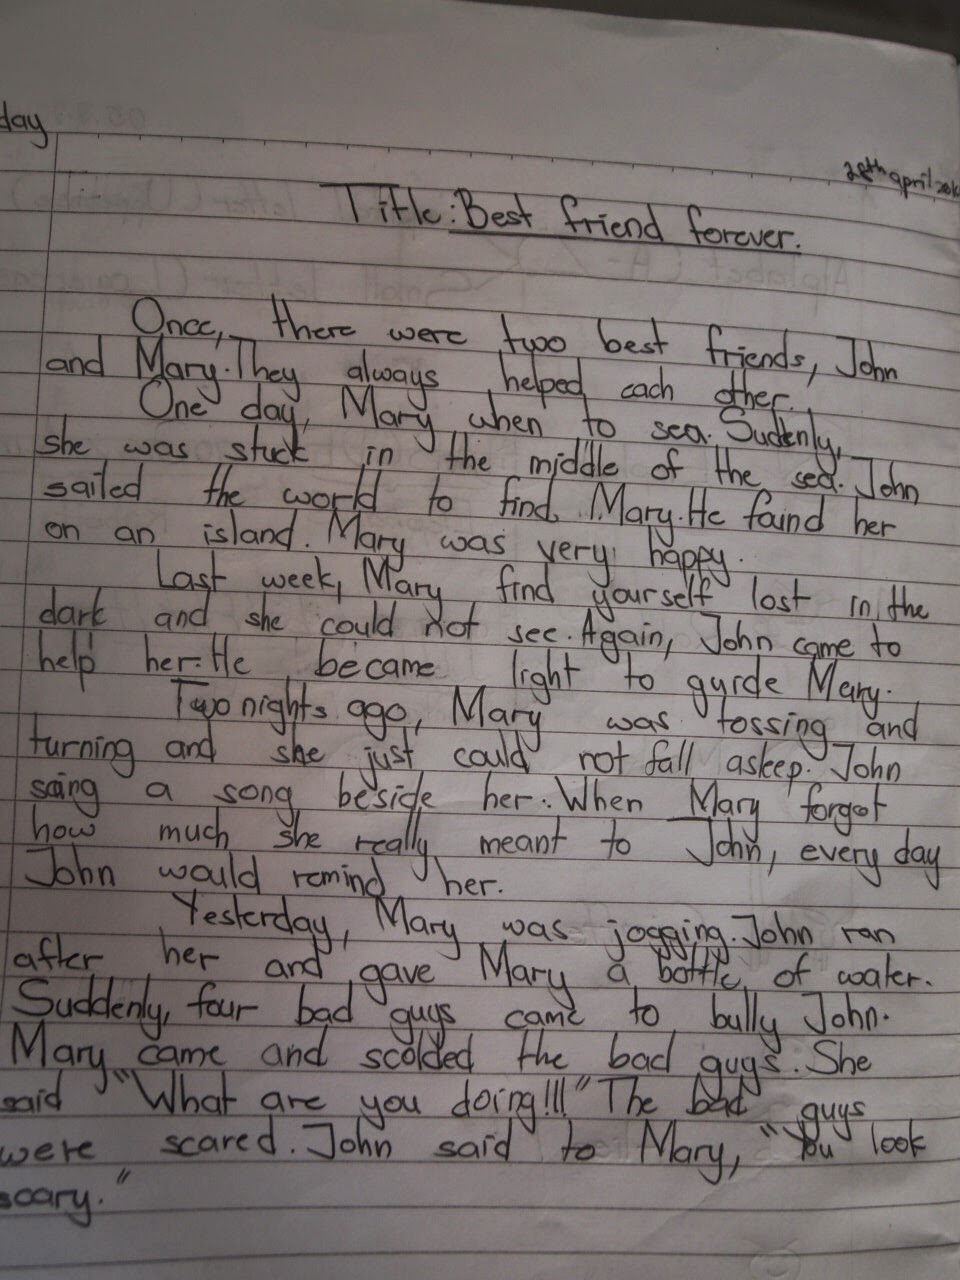 day
28th april
Title: Best friend forever.
Once, there were two best friends, John
and Mary. They always helped each other.
One day, Mary when to sea. Sudenly,
she was stuck in the middle of the sea. John
sailed the world to find Mary. He faind her
on an island. Mary was very happy.
Last week, Mary find yourself lost in the
dark and she could not see. Again, John came to
help her. He became light to gyide Mary.
Two nights ago, Mary was tossing and
turning and she just could not fall asleep. John
sang a song beside her. When Mary forgot
how much she really meant to John, every day
John would remind her.
Yesterday, Mary was jogging. John ran
after her and gave Mary a bottle of water.
Suddenly, four bad guys came to bully John.
Mary came and scolded the bad guys. She
said "What are you doing!!!" The bad guys
were scared. John said to Mary, "You look
scary."